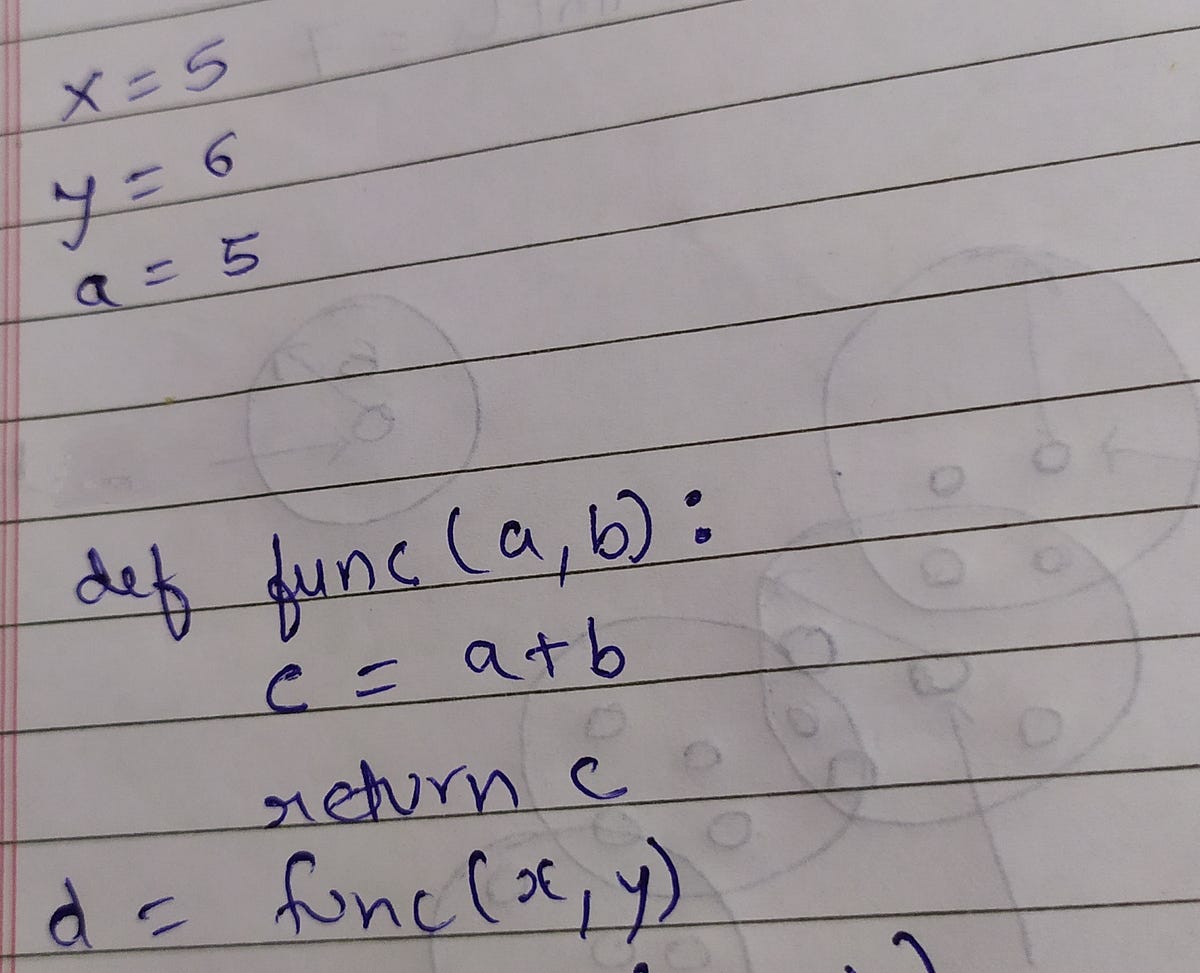 x = 5
y = 6
a = 5
def func(a,b):
c = a+b
return c
d = func(x,y)